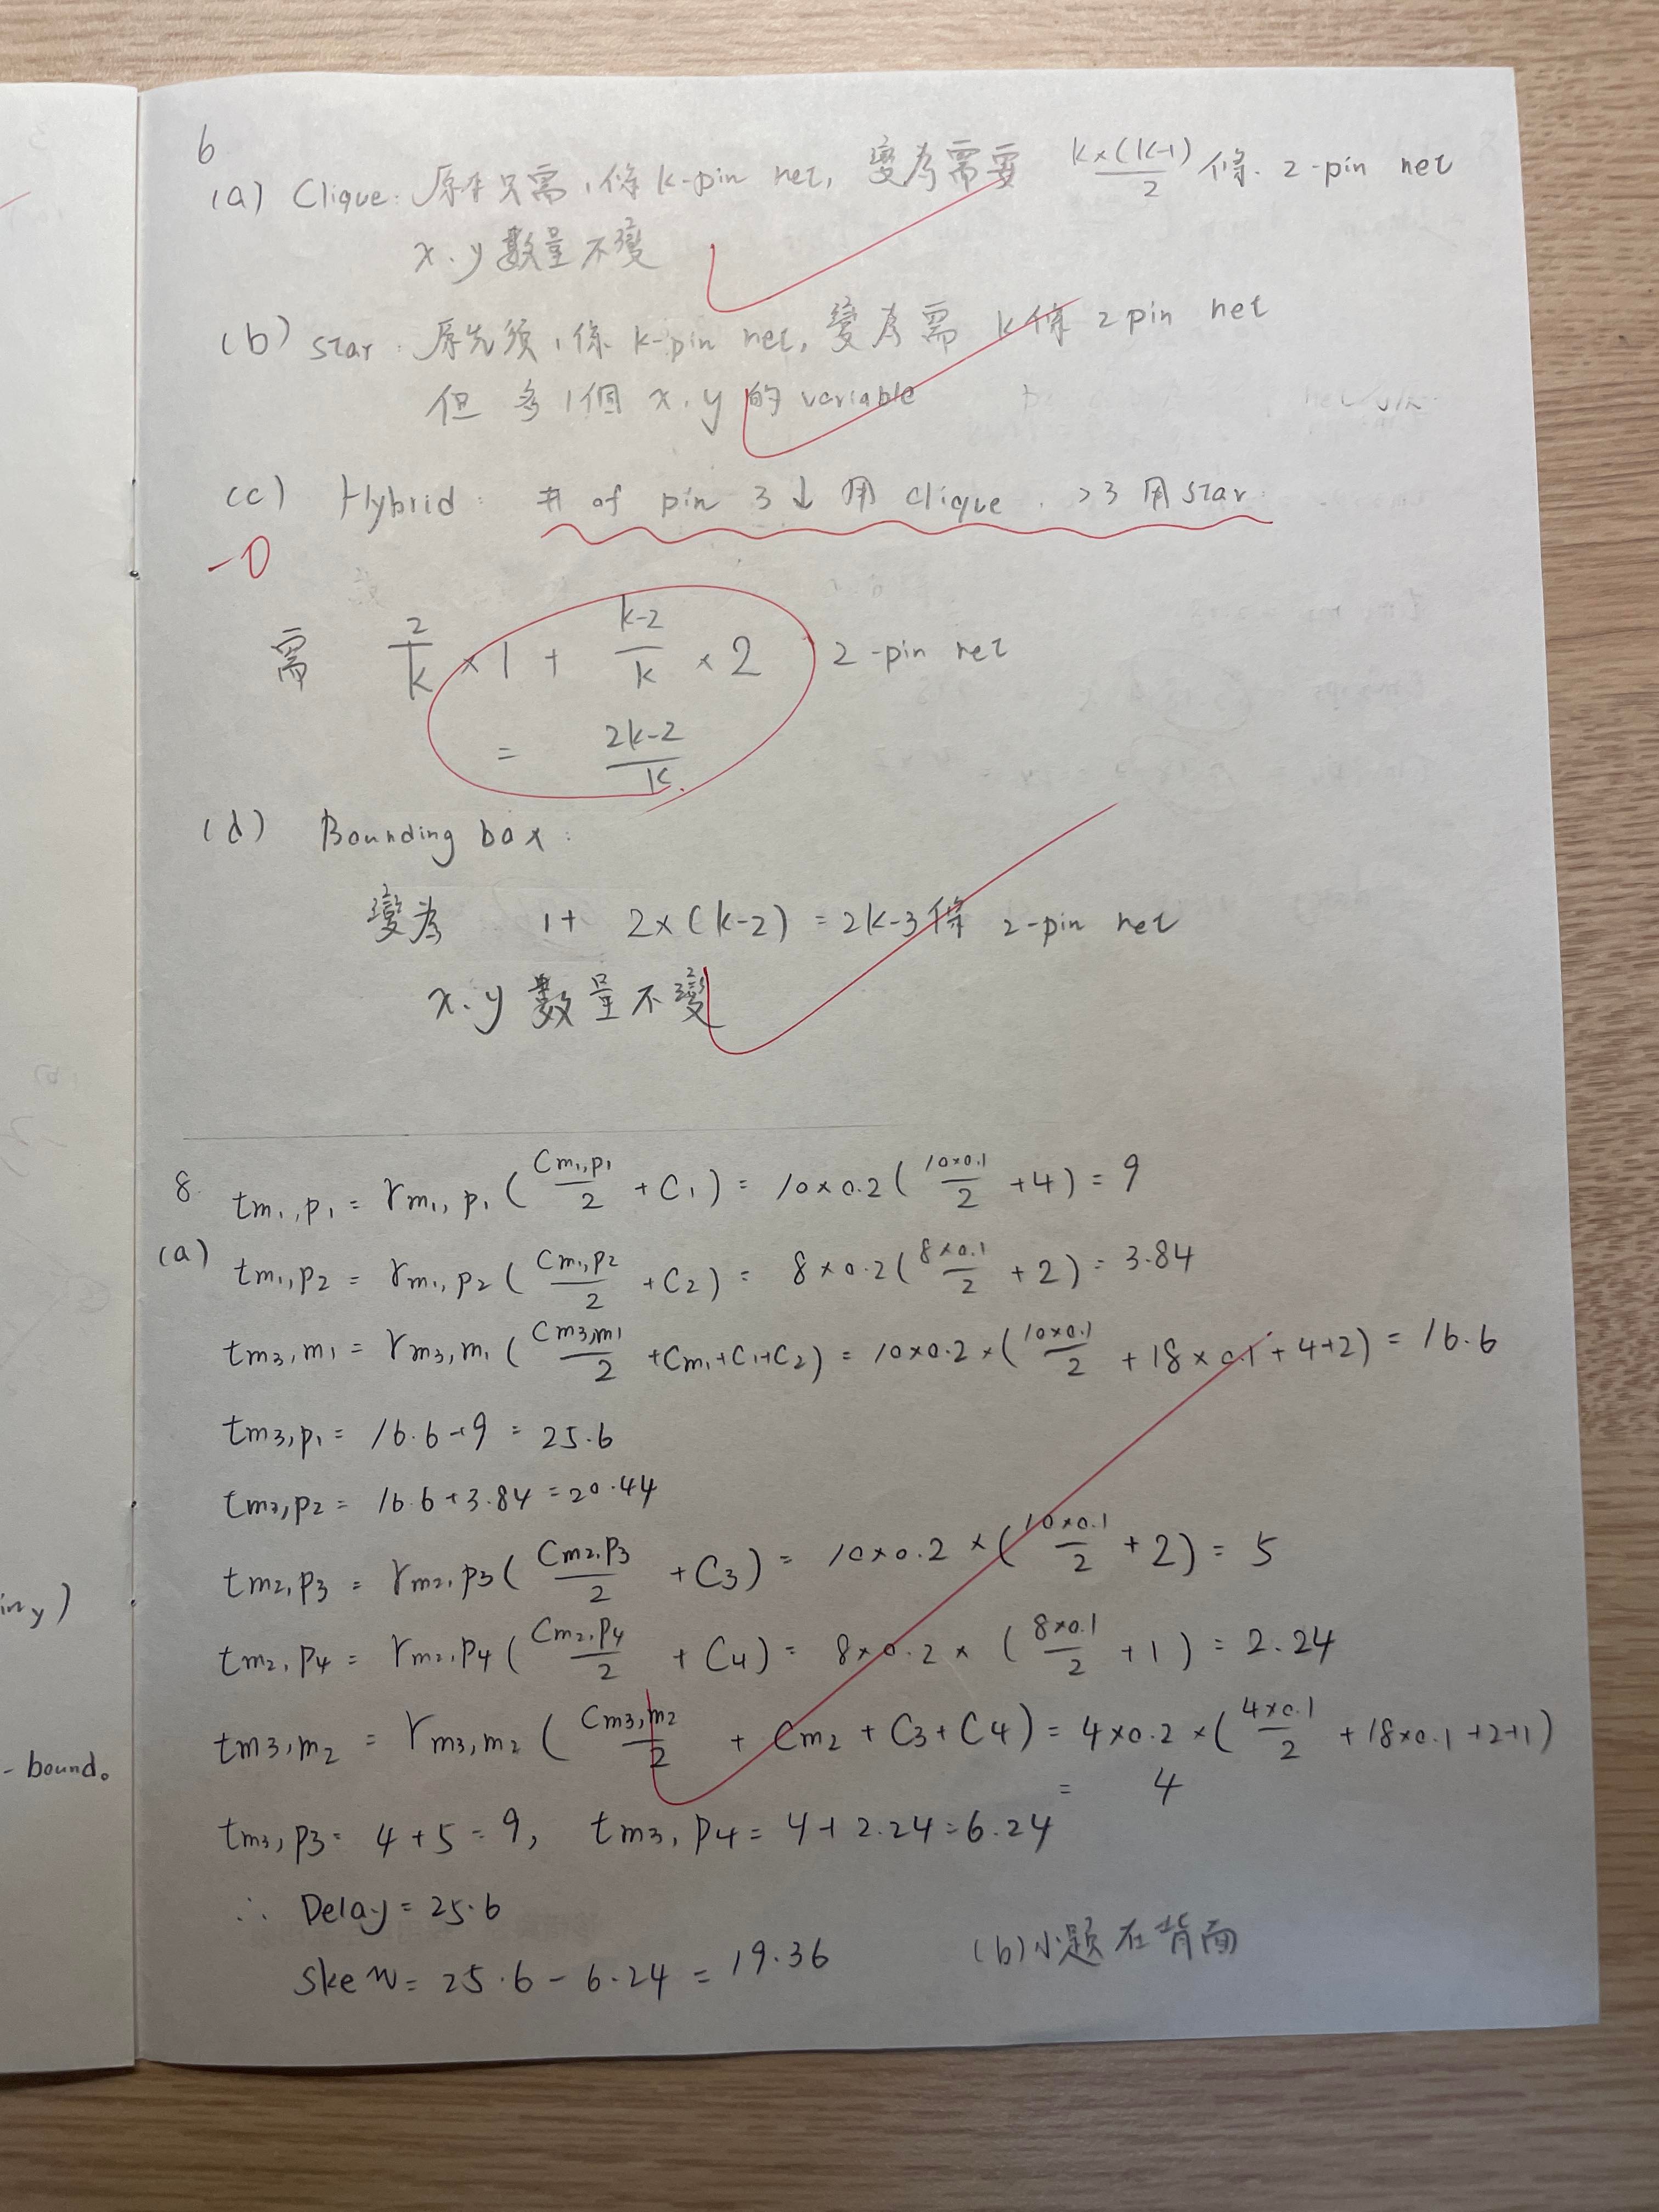 6
(a) Clique: 原本只需1條 k-pin net, 變為需要 \frac{k×(k-1)}{2} 條 2-pin net
x.y 數量不變
(b) star: 原先須1條 k-pin net, 變為需 k條 2pin net
但多1個 x.y 的 variable
(c) Hybrid: # of pin 3↓ 用 clique. >3 用 star.
-0
需 \frac{2}{k} × 1 + \frac{k-2}{k} × 2 2-pin net
= \frac{2k-2}{k}
(d) Bounding box:
變為 1+ 2×(k-2) = 2k-3條 2-pin net
x.y 數量不變
8. tm1,p1 = rm1,p1 ( \frac{Cm1,p1}{2} + C1 ) = 10×0.2 ( \frac{10×0.1}{2} +4 ) = 9
(a) tm1,p2 = rm1,p2 ( \frac{Cm1,p2}{2} + C2 ) = 8×0.2 ( \frac{8×0.1}{2} + 2 ) = 3.84
tm3,m1 = rm3,m1 ( \frac{Cm3,m1}{2} + Cm1+C1+C2 ) = 10×0.2 × ( \frac{10×0.1}{2} + 18×0.1 + 4+2 ) = 16.6
tm3,p1 = 16.6+9 = 25.6
tm3,p2 = 16.6+3.84 = 20.44
tm2,p3 = rm2,p3 ( \frac{Cm2,p3}{2} + C3 ) = 10×0.2 × ( \frac{10×0.1}{2} + 2 ) = 5
tm2,p4 = rm2,p4 ( \frac{Cm2,p4}{2} + C4 ) = 8×0.2 × ( \frac{8×0.1}{2} + 1 ) = 2.24
tm3,m2 = rm3,m2 ( \frac{Cm3,m2}{2} + Cm2 + C3 + C4 ) = 4×0.2 × ( \frac{4×0.1}{2} + 18×0.1 +2+1 )
= 4
tm3,p3 = 4+5 = 9, tm3,p4 = 4+2.24 = 6.24
∴ Delay = 25.6
Skew = 25.6 - 6.24 = 19.36
(b)小題在背面
- bound。